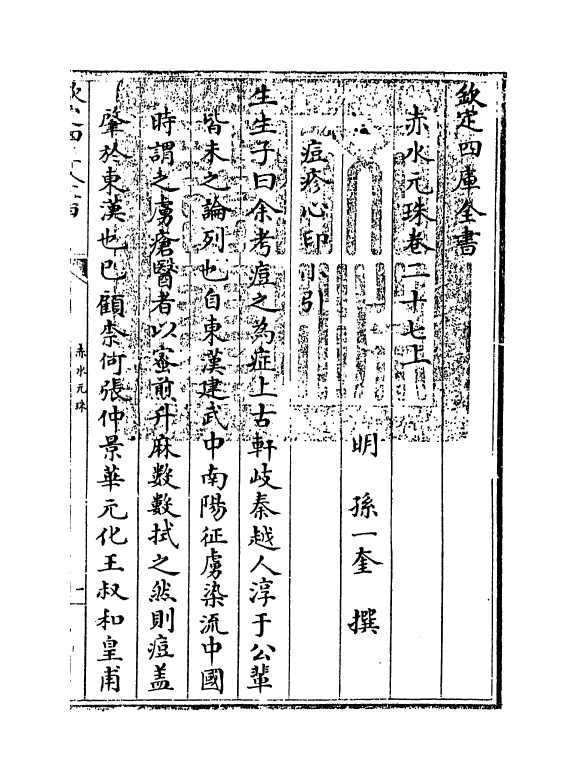 欽定四庫全書
赤水元珠卷二十七上
明 孫一奎 撰
痘疹心印小引
生生子曰余考痘之為症上古軒岐秦越人淳于公輩
皆未之論列也自東漢建武中南陽征虜染流中國
時謂之虜瘡醫者以蜜煎升麻數數拭之然則痘蓋
肇於東漢也已顧柰何張仲景華元化王叔和皇甫
赤水元珠